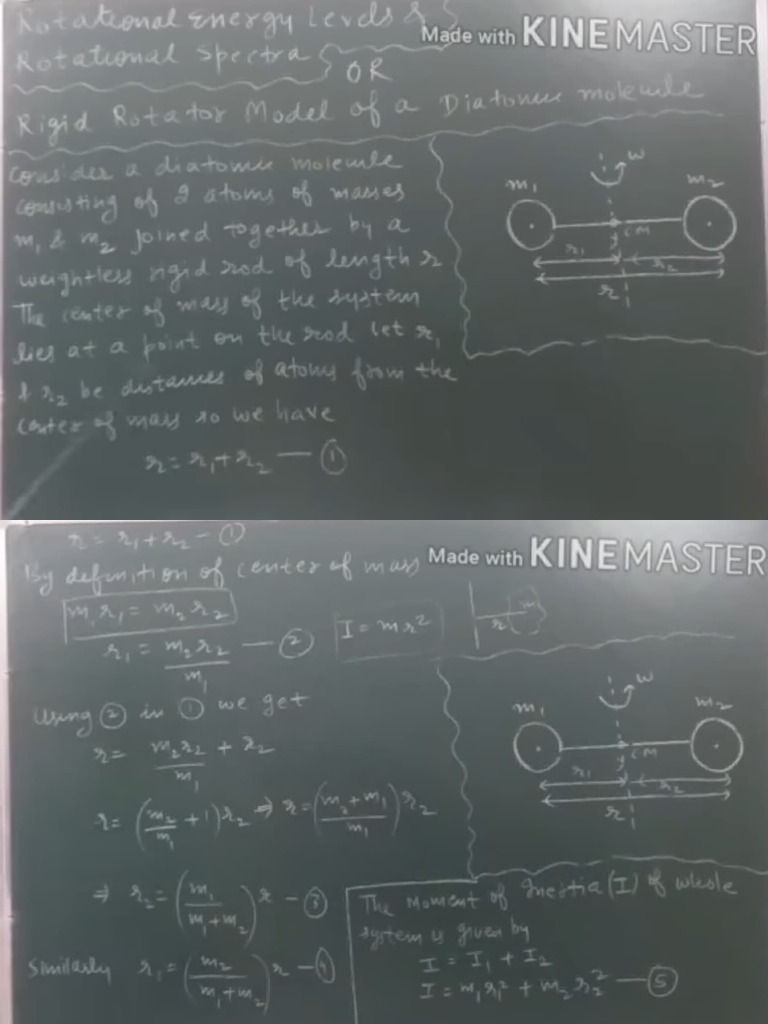 Rotational Energy Levels &
Rotational Spectra
OR
Made with KINEMASTER
Rigid Rotator Model of a Diatomic molecule
Consider a diatomic molecule
consisting of 2 atoms of masses
m₁ & m₂ joined together by a
weightless rigid rod of length r
The center of mass of the system
lies at a point on the rod let r₁
& r₂ be distances of atoms from the
center of mass so we have
r = r₁ + r₂ — ①
w
m₁
m₂
CM
r₁
r₂
r
r = r₁ + r₂ — ①
Made with KINEMASTER
By definition of center of mass
m₁r₁ = m₂r₂
r₁ = m₂r₂/m₁ — ②
I = mr²
r
m
Using ② in ① we get
r = m₂r₂/m₁ + r₂
r = (m₂/m₁ + 1) r₂ ⇒ r = (m₂+m₁/m₁) r₂
⇒ r₂ = (m₁/m₁+m₂) r — ③
Similarly r₁ = (m₂/m₁+m₂) r — ④
w
m₁
m₂
CM
r₁
r₂
r
The Moment of Inertia (I) of whole
system is given by
I = I₁ + I₂
I = m₁r₁² + m₂r₂² — ⑤